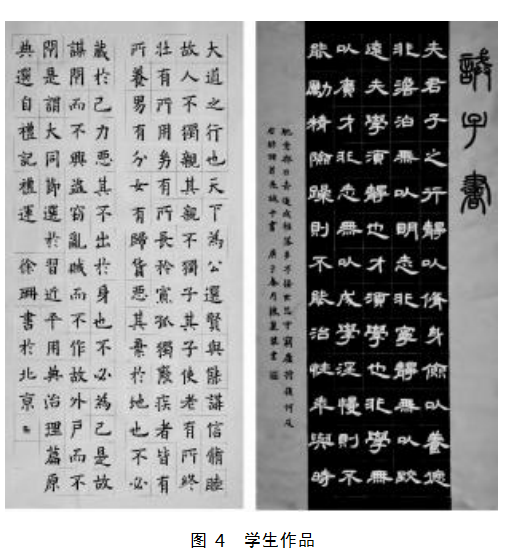 大道之行也天下為公選賢與能講信脩睦
故人不獨親其親不獨子其子使老有所終
壯有所用幼有所長矜寡孤獨廢疾者皆有
所養男有分女有歸貨惡其棄於地也不必
藏於己力惡其不出於身也不必為己是故
謀閉而不興盜竊亂賊而不作故外戶而不
閉是謂大同節選於習近平用典治理篇原
典選自禮記禮運 徐珊書於北京
誡子書
夫君子之行靜以脩身儉以養德
非澹泊無以明志非寧靜無以致
遠夫學須靜也才須學也非學無
以廣才非志無以成學淫慢則不
能勵精險躁則不能治性年與時
馳意與日去遂成枯落多不接世悲守窮廬將復何及
右錄諸葛亮誡子書 庚子春月陳書
图 4 学生作品